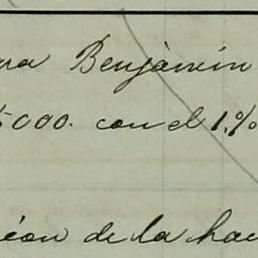 ra Benjamin
5000. con el 1.%
de la hac